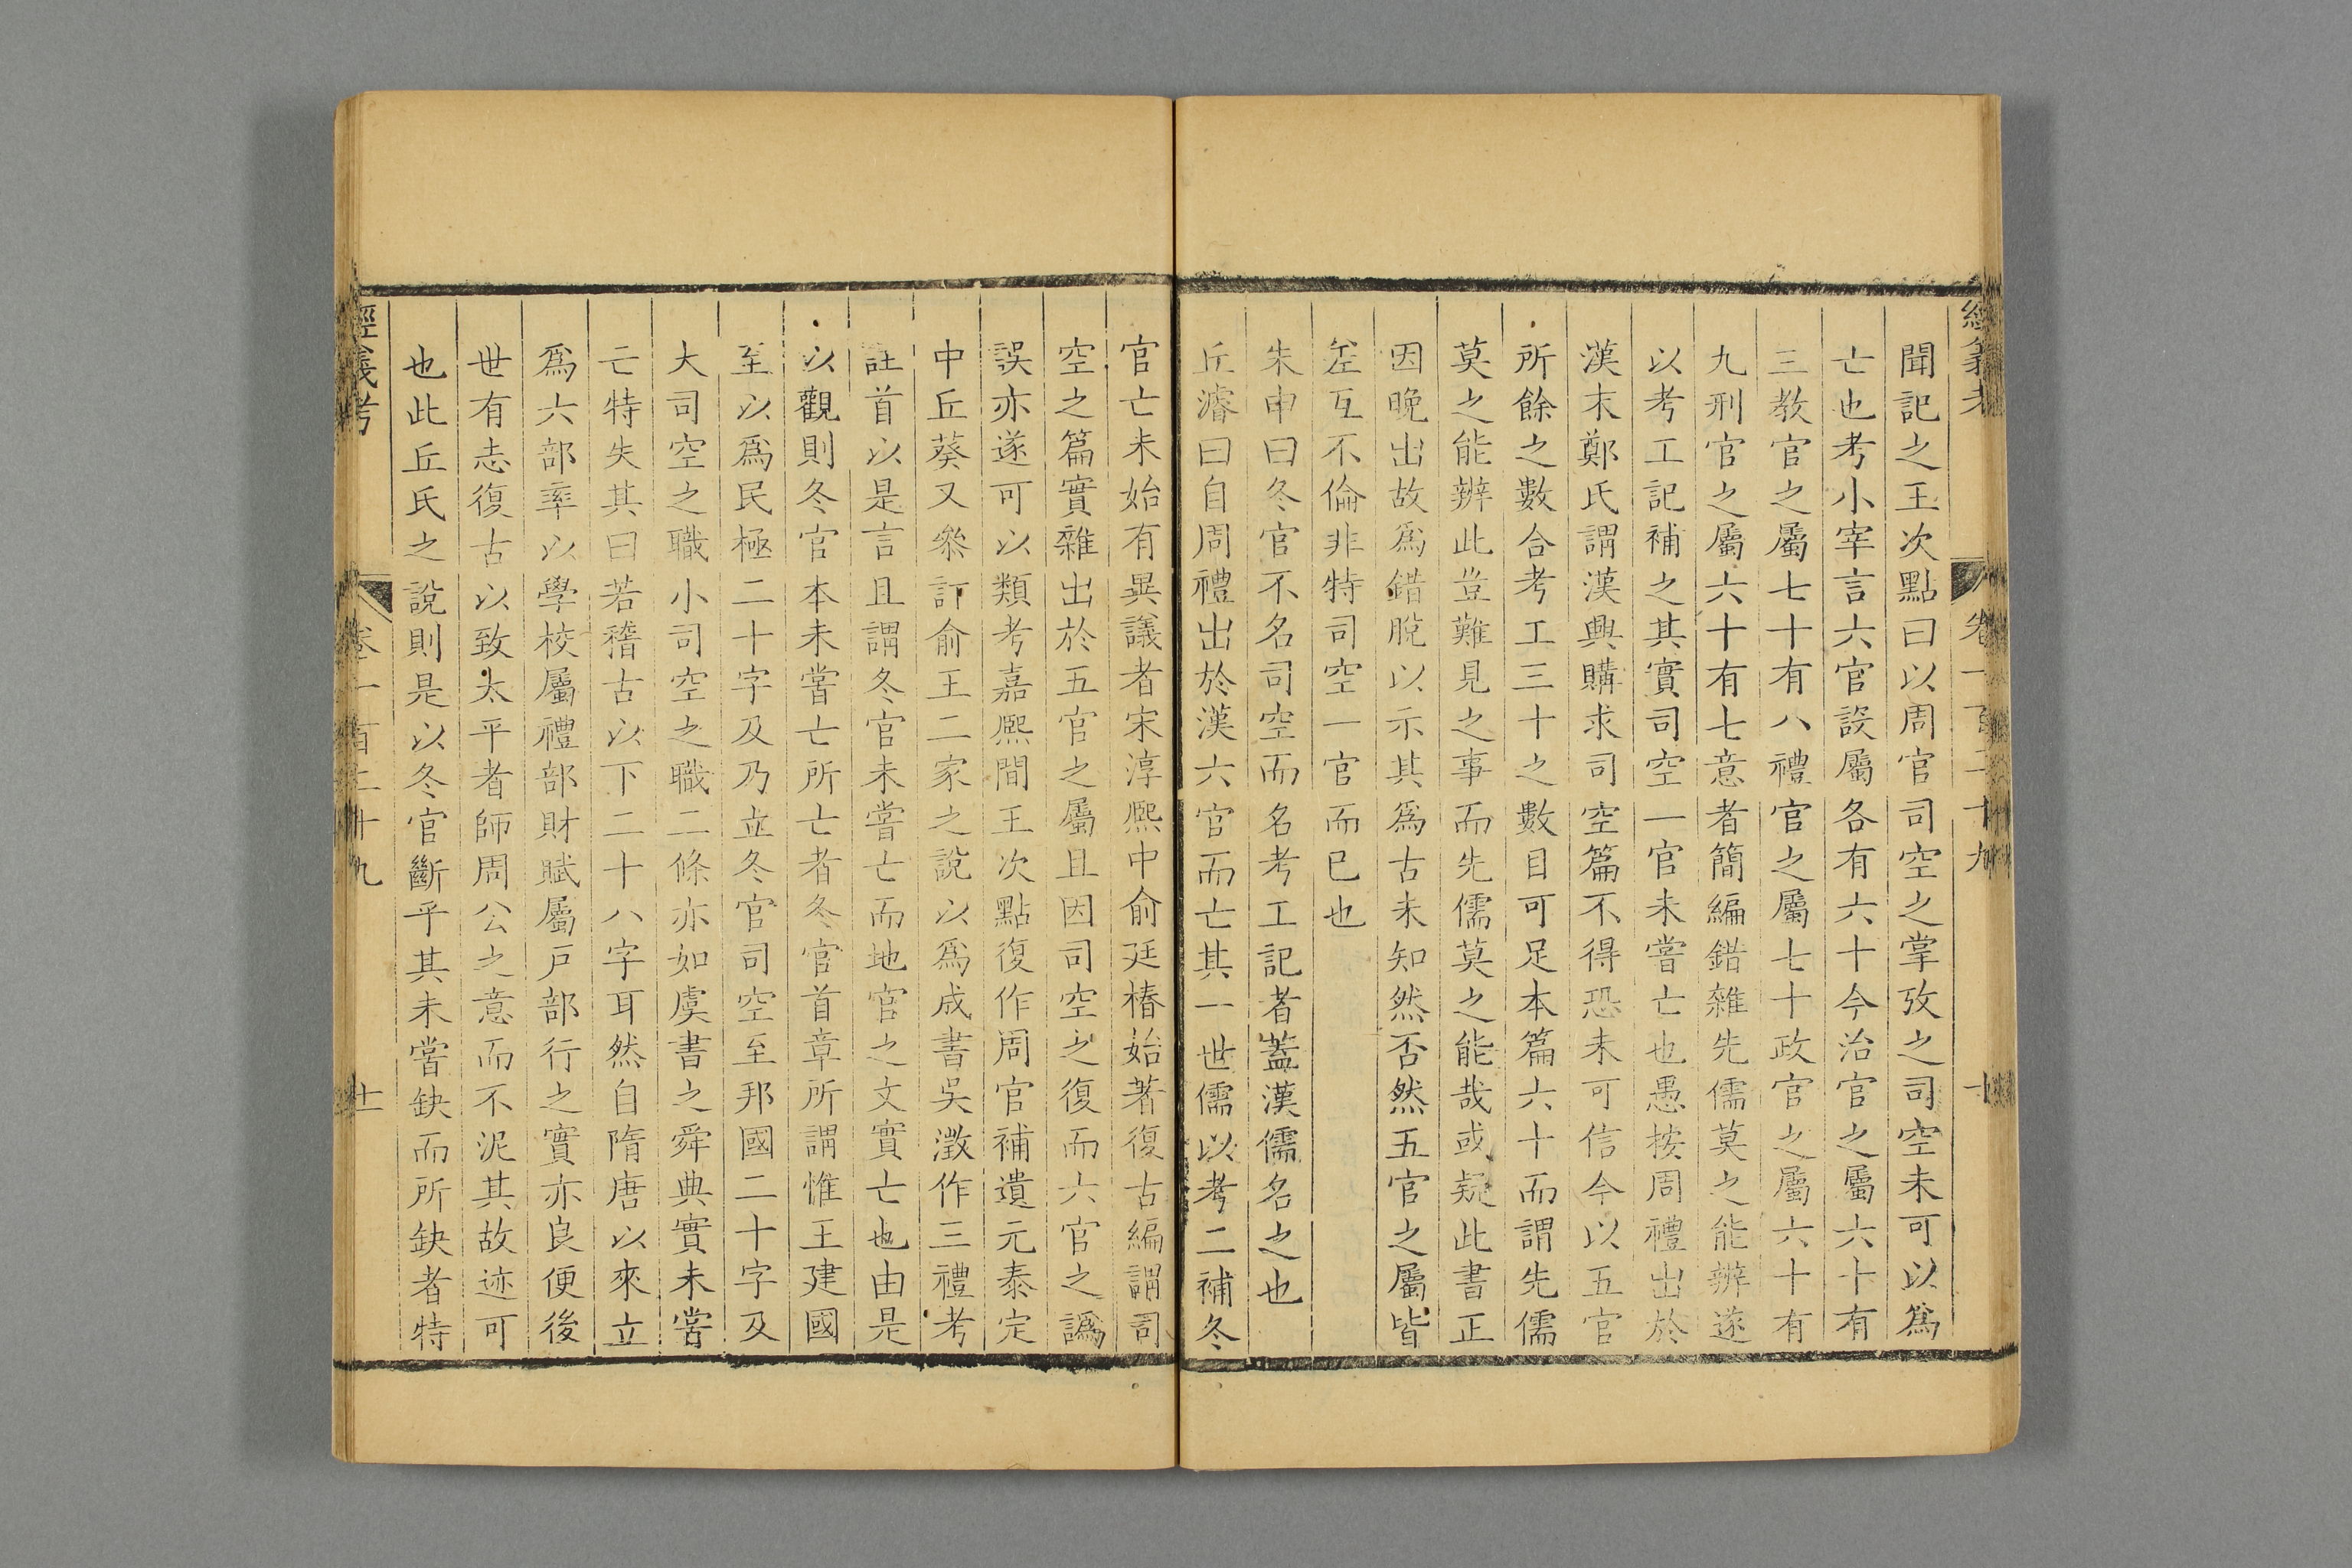 經義考 卷一百二十九 十
聞記之王次點曰以周官司空之掌攷之司空未可以爲
亡也考小宰言六官設屬各有六十今治官之屬六十有
三教官之屬七十有八禮官之屬七十政官之屬六十有
九刑官之屬六十有七意者簡編錯雜先儒莫之能辨遂
以考工記補之其實司空一官未嘗亡也愚按周禮出於
漢末鄭氏謂漢興購求司空篇不得恐未可信今以五官
所餘之數合考工三十之數目可足本篇六十而謂先儒
莫之能辨此豈難見之事而先儒莫之能哉或疑此書正
因晚出故爲錯脫以示其爲古未知然否然五官之屬皆
差互不倫非特司空一官而已也
朱申曰冬官不名司空而名考工記者蓋漢儒名之也
丘濬曰自周禮出於漢六官而亡其一世儒以考二補冬
官亡未始有異議者宋淳熙中俞廷椿始著復古編謂司
空之篇實雜出於五官之屬且因司空之復而六官之譌
誤亦遂可以類考嘉熙間王次點復作周官補遺元泰定
中丘葵又叅訂俞王二家之說以爲成書吳澂作三禮考
註首以是言且謂冬官未嘗亡而地官之文實亡也由是
以觀則冬官本未嘗亡所亡者冬官首章所謂惟王建國
至以爲民極二十字及乃立冬官司空至邦國二十字及
大司空之職小司空之職二條亦如虞書之舜典實未嘗
亡特失其曰若稽古以下二十八字耳然自隋唐以來立
爲六部率以學校屬禮部財賦屬戸部行之實亦良便後
世有志復古以致太平者師周公之意而不泥其故迹可
也此丘氏之說則是以冬官斷乎其未嘗缺而所缺者特
經義考 卷一百二十九 十一